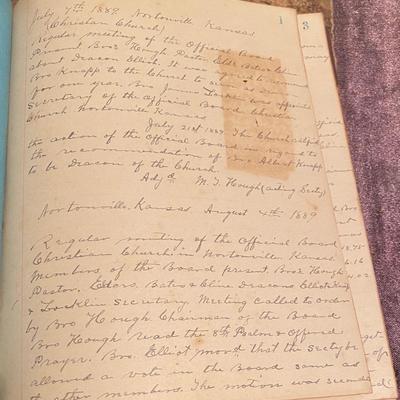 1 3
July 7th 1889 Nortonville Kansas
(Christian Church)
Regular meeting of the Official Board
Present Bros Hough Pastor Elds Bates & Cline
about Deacon Elliot. It was agreed to
Bro Knapp to the Church to serve as Deacon
for one year. Bro James Locklin was
Secretary of the Official Board Christian
Church Nortonville Kansas
July 21st 1889 The Church
the action of the Official Board in regard to
the recommendation of Bro Albert Knapp
to be Deacon of the Church.
Adjd M. T. Hough (acting Secty)
Nortonville, Kansas August 4th 1889
Regular meeting of the Official Board
Christian Church in Nortonville Kansas
Members of the Board present Bros Hough
Pastor, Elders, Bates & Cline Deacons Elliot
& Locklin Secretary. Meeting called to order
by Bro Hough Chairman of the Board
Bro Hough read the 8th Psalm & Offered
Prayer. Bro. Elliot moved that the secty be
allowed a vote in the Board same as
other members. The motion was